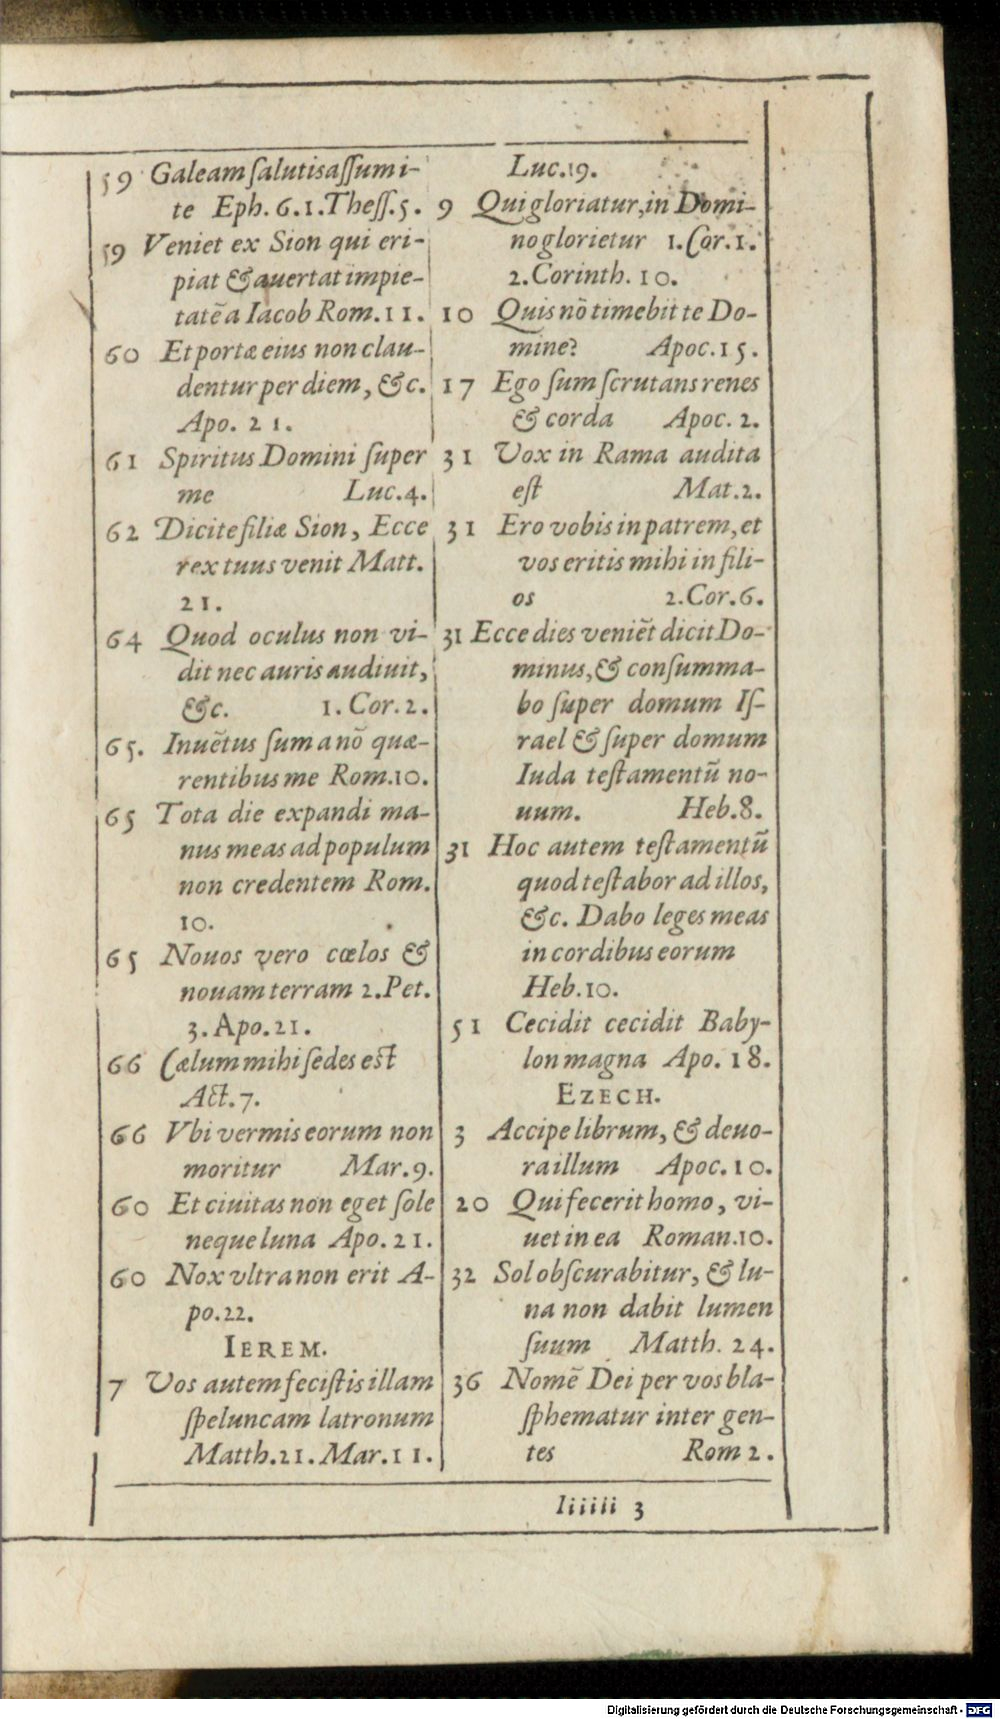 59 Galeam ſalutis aſſumi-
te Eph. 6. 1. Theſſ. 5.
59 Veniet ex Sion qui eri-
piat & auertat impie-
tatē a Iacob Rom. 11.
60 Et portæ eius non clau-
dentur per diem, &c.
Apo. 21.
61 Spiritus Domini ſuper
me Luc. 4.
62 Dicite filiæ Sion, Ecce
rex tuus venit Matt.
21.
64 Quod oculus non vi-
dit nec auris audiuit,
&c. 1. Cor. 2.
65. Inuētus ſum a nō quæ-
rentibus me Rom. 10.
65 Tota die expandi ma-
nus meas ad populum
non credentem Rom.
10.
65 Nouos vero cœlos &
nouam terram 2. Pet.
3. Apo. 21.
66 Cælum mihi ſedes est
Act. 7.
66 Vbi vermis eorum non
moritur Mar. 9.
60 Et ciuitas non eget ſole
neque luna Apo. 21.
60 Nox vltra non erit A-
po. 22.
IEREM.
7 Vos autem feciſtis illam
ſpeluncam latronum
Matth. 21. Mar. 11.
Luc. 19.
9 Qui gloriatur, in Domi-
no glorietur 1. Cor. 1.
2. Corinth. 10.
10 Quis nō timebit te Do-
mine? Apoc. 15.
17 Ego ſum ſcrutans renes
& corda Apoc. 2.
31 Vox in Rama audita
eſt Mat. 2.
31 Ero vobis in patrem, et
vos eritis mihi in fili-
os 2. Cor. 6.
31 Ecce dies veniēt dicit Do-
minus, & conſumma-
bo ſuper domum Iſ-
rael & ſuper domum
Iuda teſtamentū no-
uum. Heb. 8.
31 Hoc autem teſtamentū
quod teſtabor ad illos,
&c. Dabo leges meas
in cordibus eorum
Heb. 10.
51 Cecidit cecidit Baby-
lon magna Apo. 18.
EZECH.
3 Accipe librum, & deuo-
ra illum Apoc. 10.
20 Qui fecerit homo, vi-
uet in ea Roman. 10.
32 Sol obſcurabitur, & lu-
na non dabit lumen
ſuum Matth. 24.
36 Nomē Dei per vos bla-
ſphematur inter gen-
tes Rom 2.
Iiiiii 3
Digitalisierung gefördert durch die Deutsche Forschungsgemeinschaft - DFG